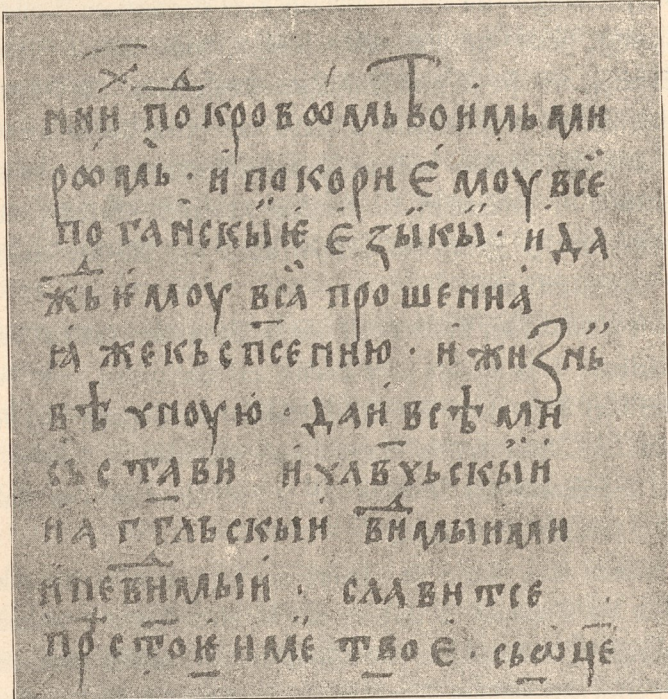 нни покровѡмь твоимь ми
рѡмь · и покори ѥмоу все
поганскыѥ ѥзыкы · и да
жь ѥмоу всꙗ прошенна
ꙗже кь спсенню · и жизнь
вѣчноую · дан всѣми
сьстави и члвчьскыи
и аггльскыи видимыими
и невидимыи · славитсе
прстоѥ име твоѥ · сь ѡце